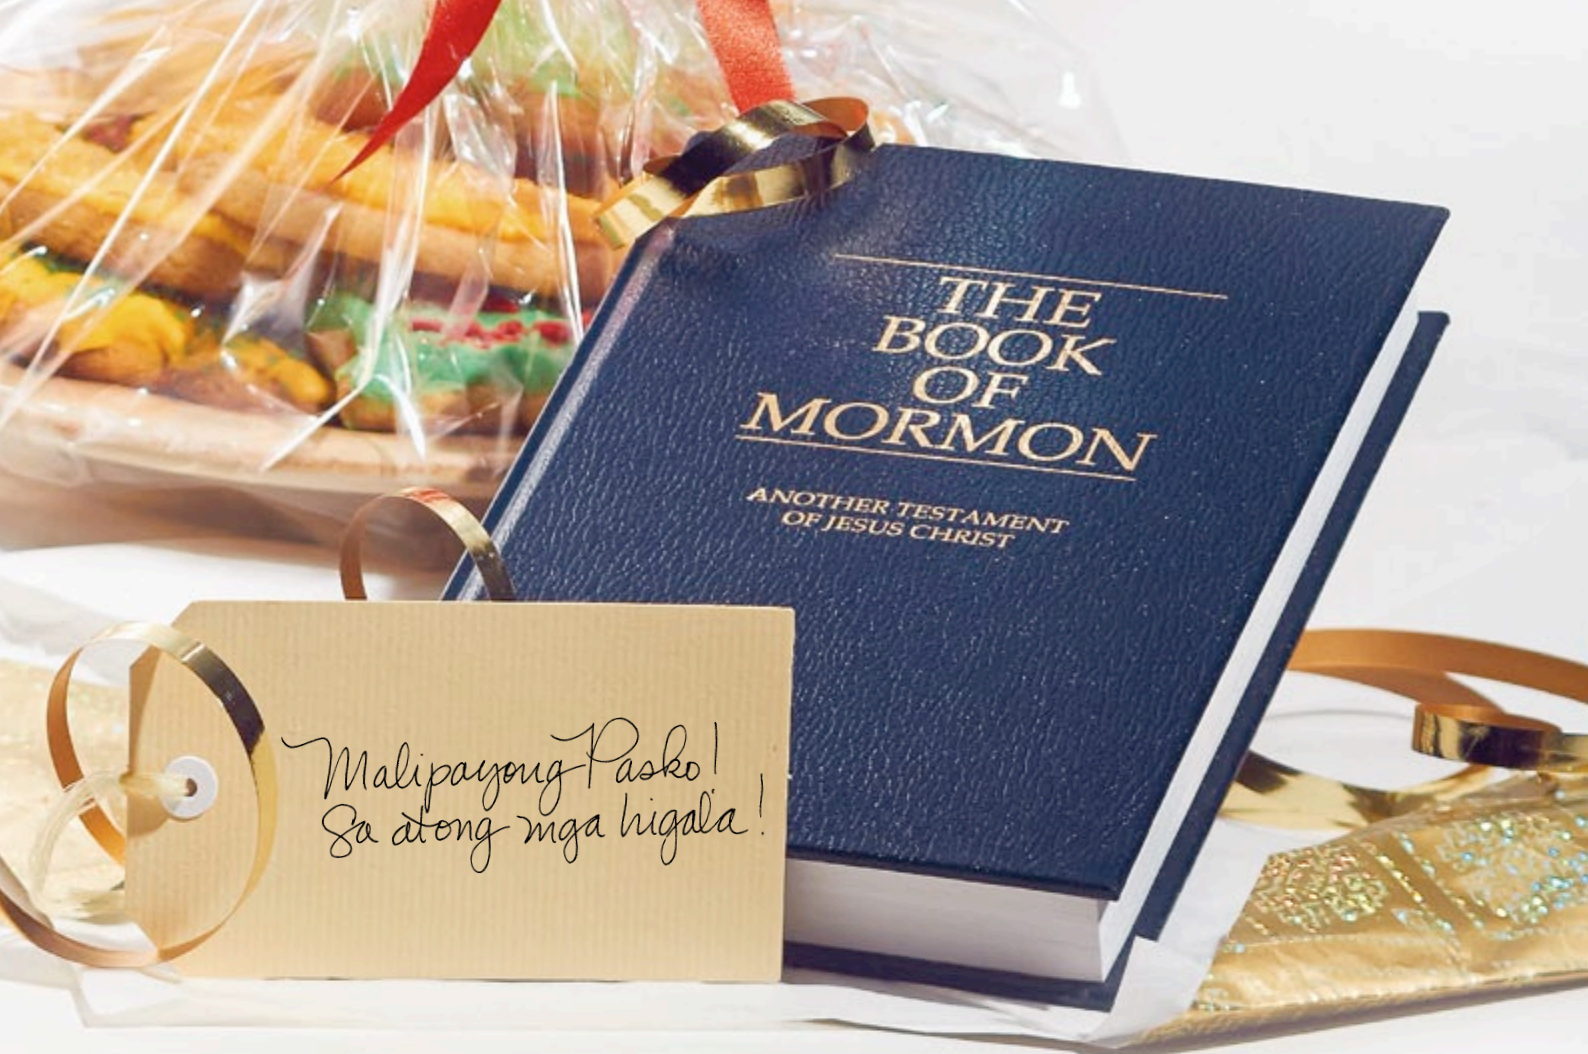 THE
BOOK
OF
MORMON
ANOTHER TESTAMENT
OF JESUS CHRIST
Malipayong Pasko!
Sa atong mga higala!